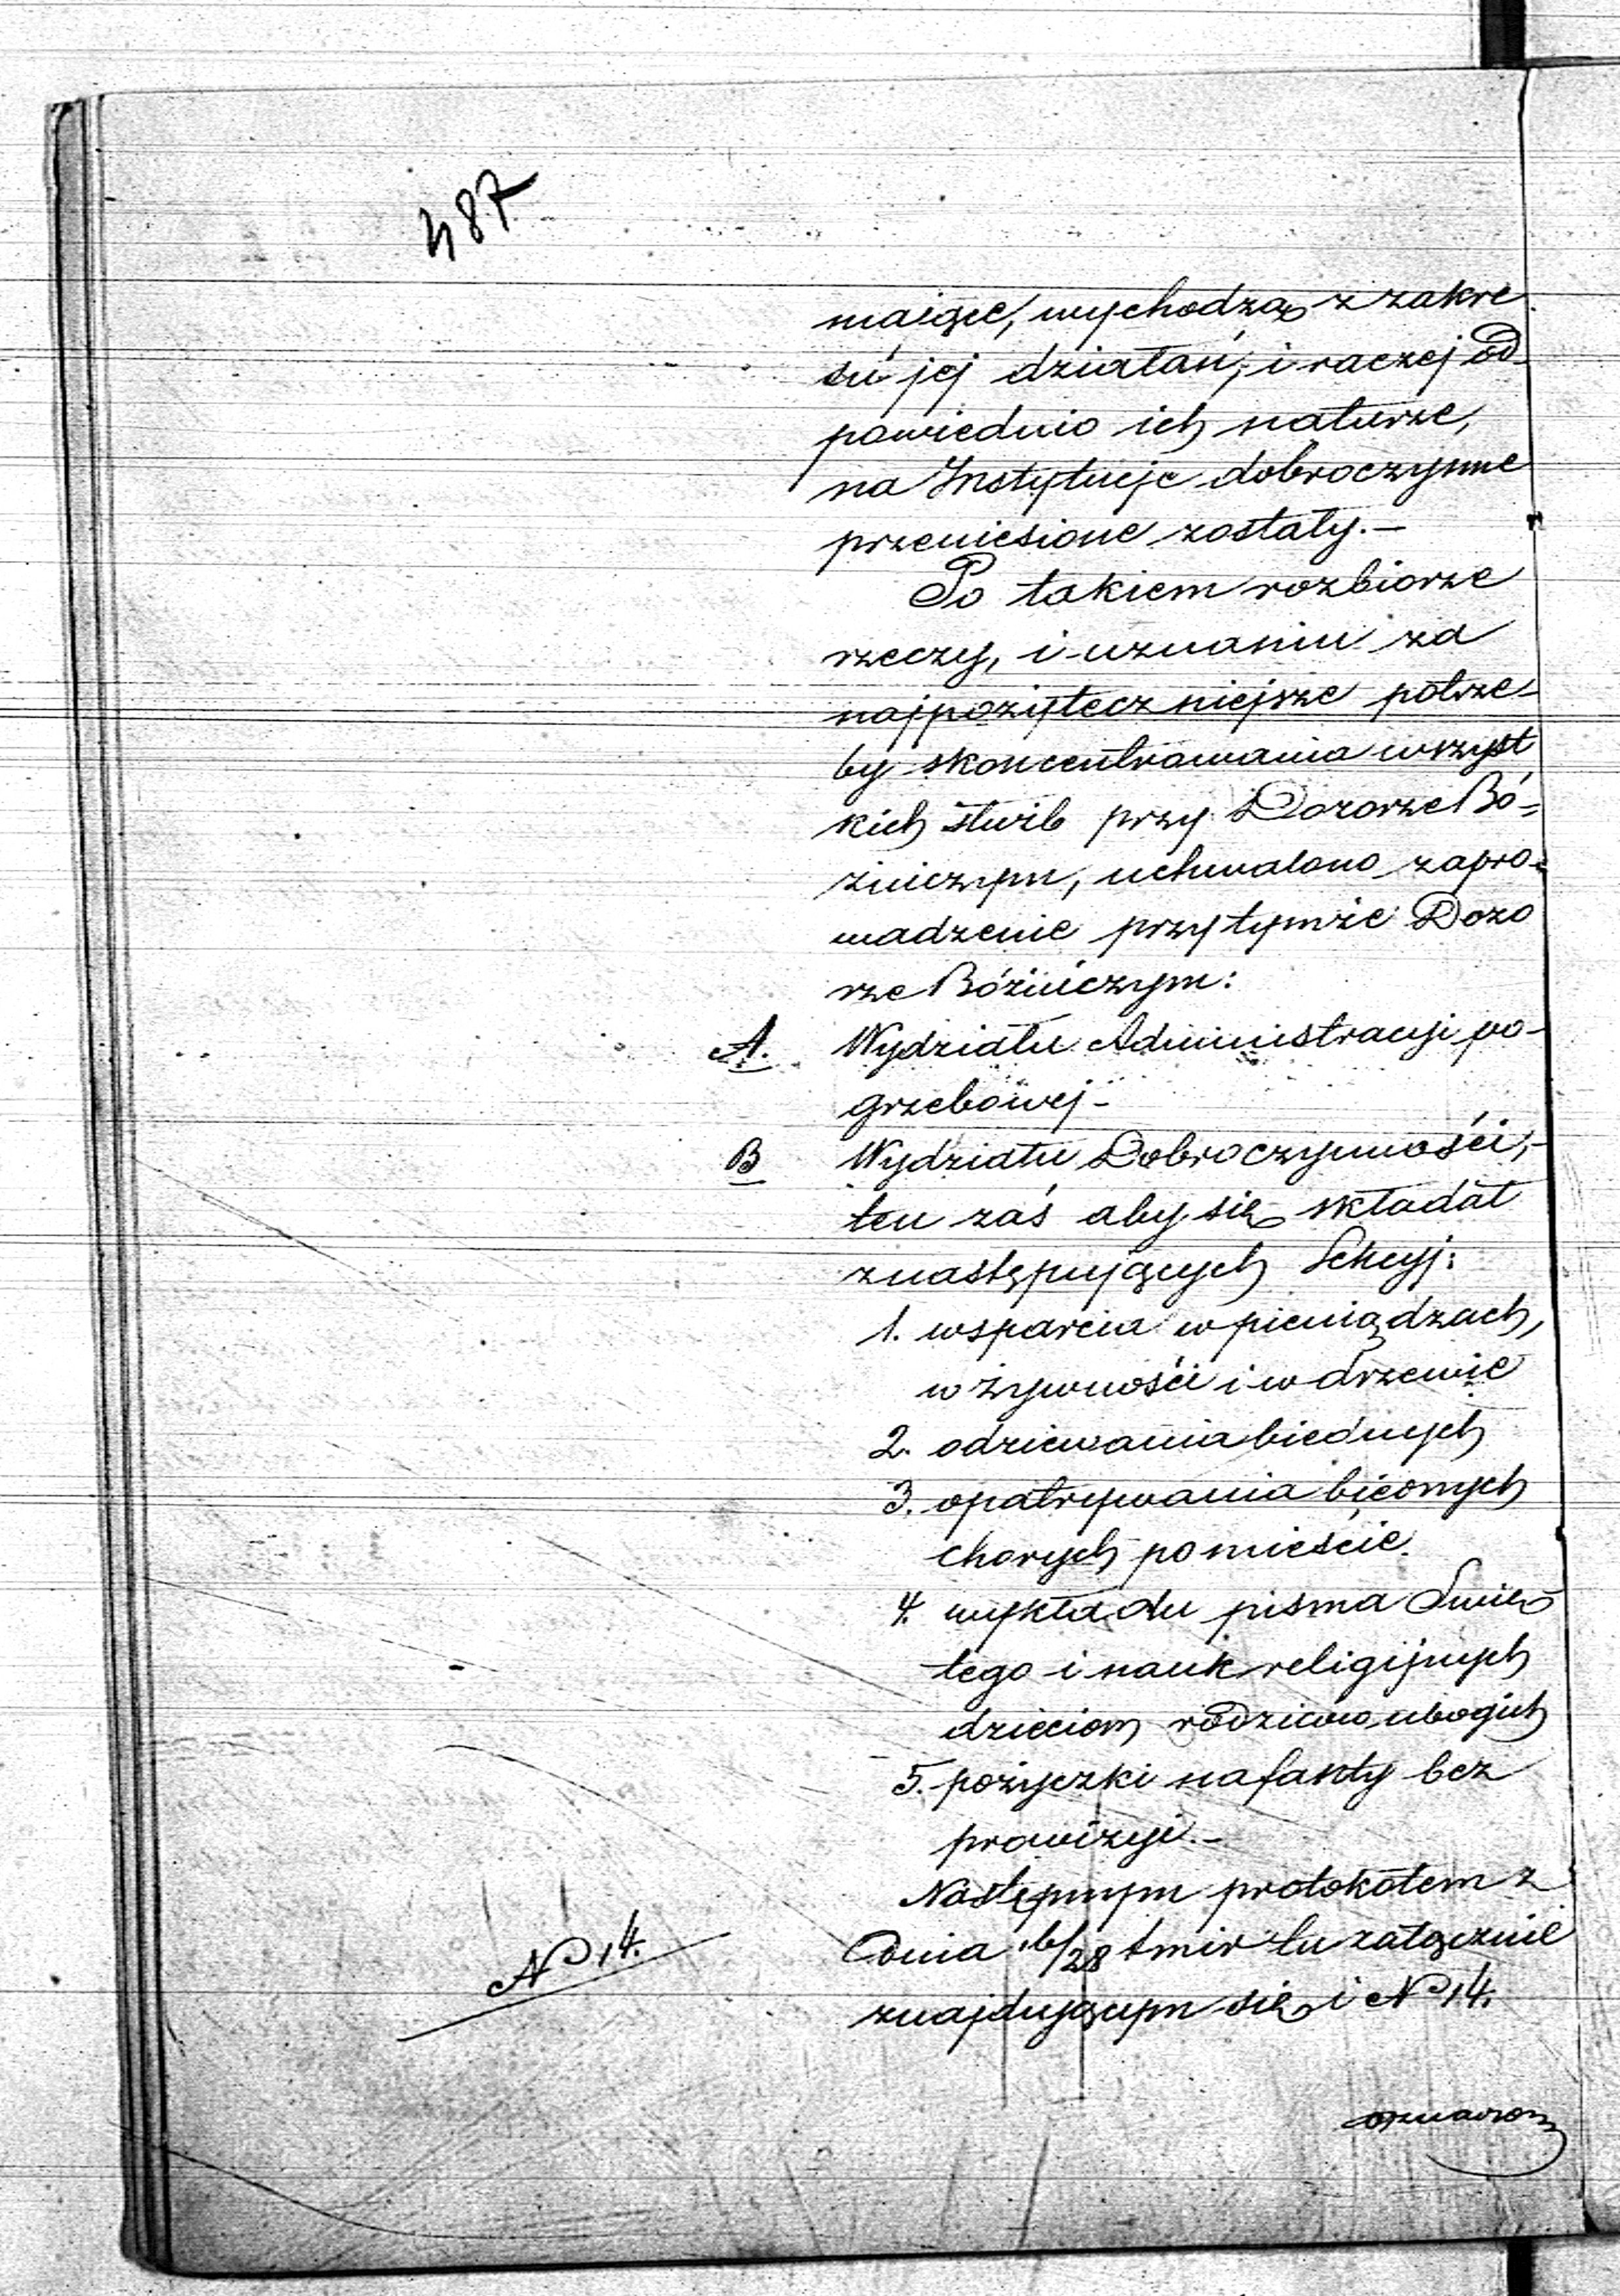 487
maiące, wychodzą z zakre
su jej działań, i raczej od-
powiednio ich naturze,
na Instytucje dobroczynne
przeniesione zostały.—
Po takiem rozbiorze
rzeczy, i uznaniu za
najpożyteczniejsze potrze-
by skoncentrowania wszyst
kich służb przy Dozorze Bó=
żniczym, uchwalono zapro=
wadzenie przy tymże Dozo
rze Bóżniczym:
A. Wydziału Administracyi po-
grzebowej-
B Wydziału Dobroczynności,-
ten zaś aby się składał
z następujących Sekcyj:
1. wsparcia w pieniądzach,
w żywności i w drzewie
2. odziewania biednych
3. opatrywania biednych
chorych po mieście.
4. wykładu pisma Świę
tego i nauk religijnych
dzieciom rodziców ubogich
5. pożyczki na fanty bez
prowizyi.-
Następnym protokołem z
N° 14. dnia 16/28 tmir tu załącznie
znajdującym się i N° 14.
oznaczon